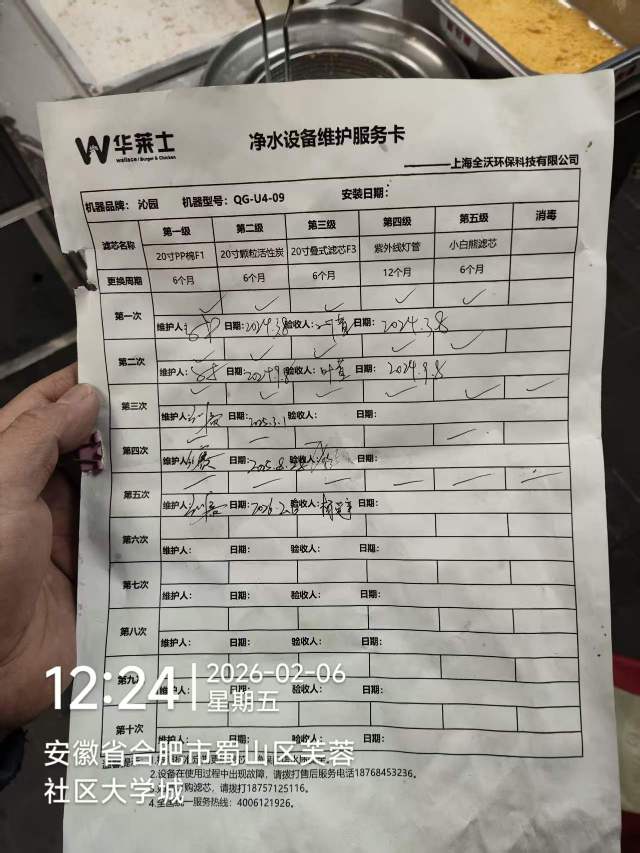 W 华莱士
wallace / Burger & Chicken
净水设备维护服务卡
———上海全沃环保科技有限公司
机器品牌: 沁园 机器型号: QG-U4-09 安装日期:
滤芯名称 第一级 第二级 第三级 第四级 第五级 消毒
20寸PP棉F1 20寸颗粒活性炭 20寸叠式滤芯F3 紫外线灯管 小白熊滤芯
更换周期 6个月 6个月 6个月 12个月 6个月
第一次 ✓ ✓ ✓ ✓ ✓
维护人: 日期: 2024.3.8 验收人: 日期: 2024.3.8
第二次 ✓ ✓ ✓ ✓ ✓
维护人: 日期: 2024.9.8 验收人: 日期: 2024.9.8
第三次 ✓ ✓ ✓ ✓ ✓ ✓
维护人: 日期: 2025.3.1 验收人: 日期:
第四次
维护人: 日期: 2025.8. 验收人: 日期:
第五次
维护人: 日期: 2026.2. 验收人: 日期:
第六次
维护人: 日期: 验收人: 日期:
第七次
维护人: 日期: 验收人: 日期:
第八次
维护人: 日期: 验收人: 日期:
第九
日期: 验收人: 日期:
第十次
维护人: 日期: 验收人: 日期:
2.设备在使用过程中出现故障，请拨打售后服务电话18768453236。
购滤芯，请拨打18757125116。
服务热线：4006121926。
12:24 2026-02-06
星期五
安徽省合肥市蜀山区芙蓉
社区大学城